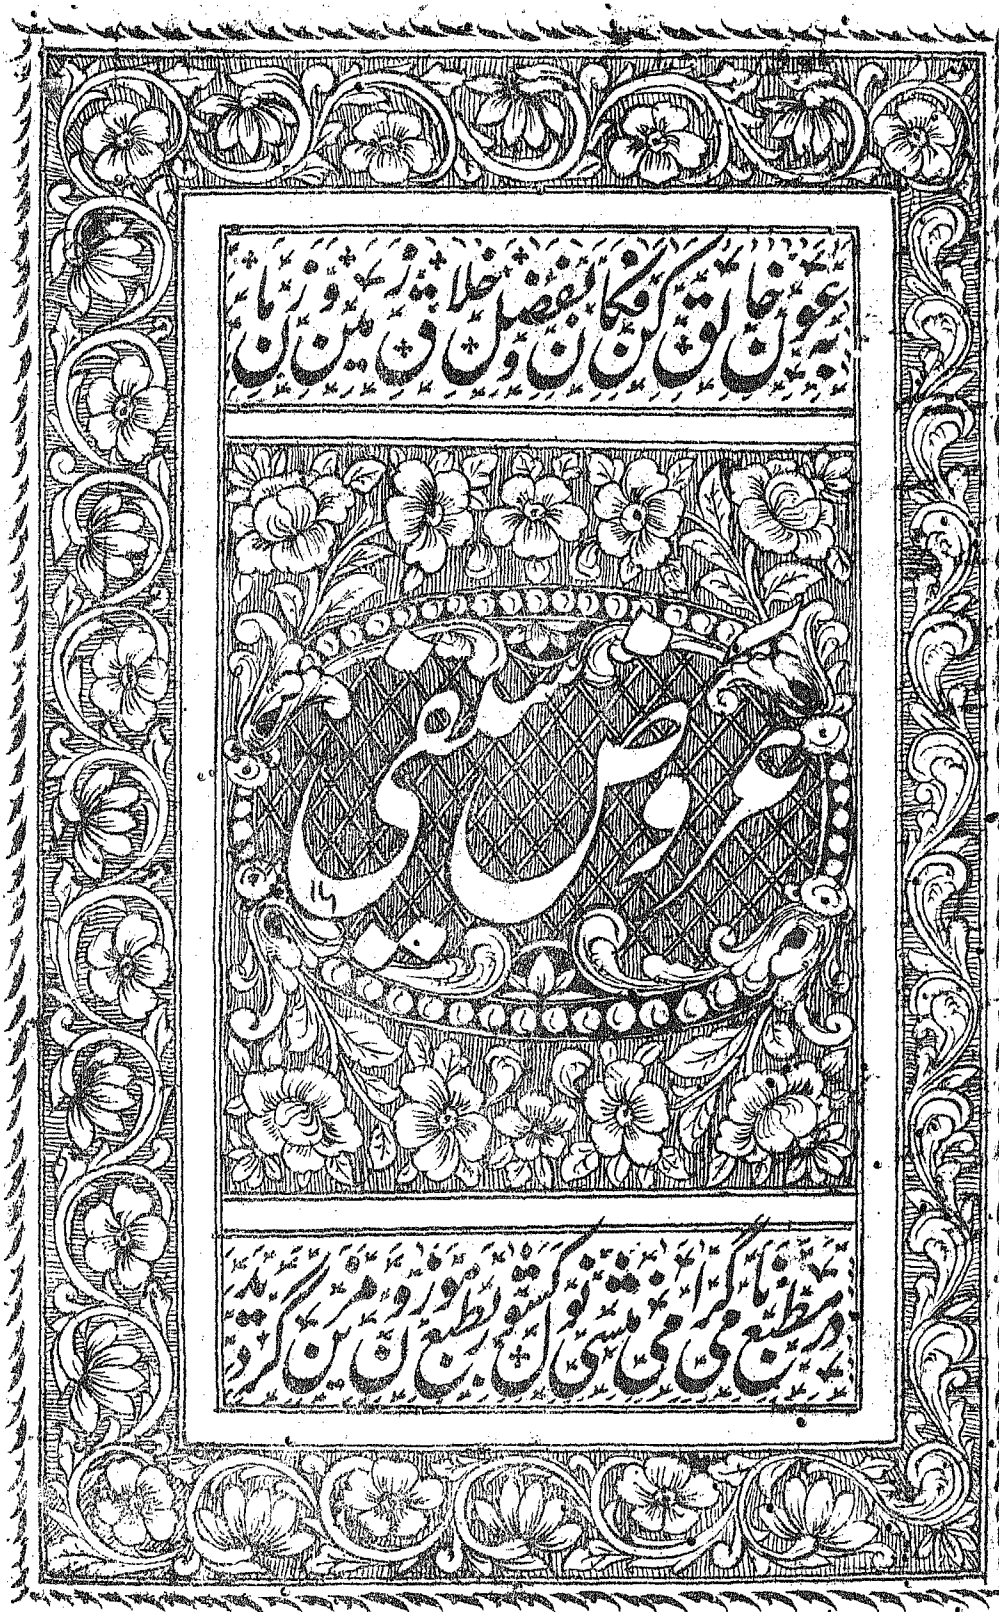 بہ عون خالق کن فکان و بفضل خلاق زمین و زمان
عروض سیفی
۱۲
در مطبع نامی گرامی منشی نولکشور بطبع موزون مزین گردید